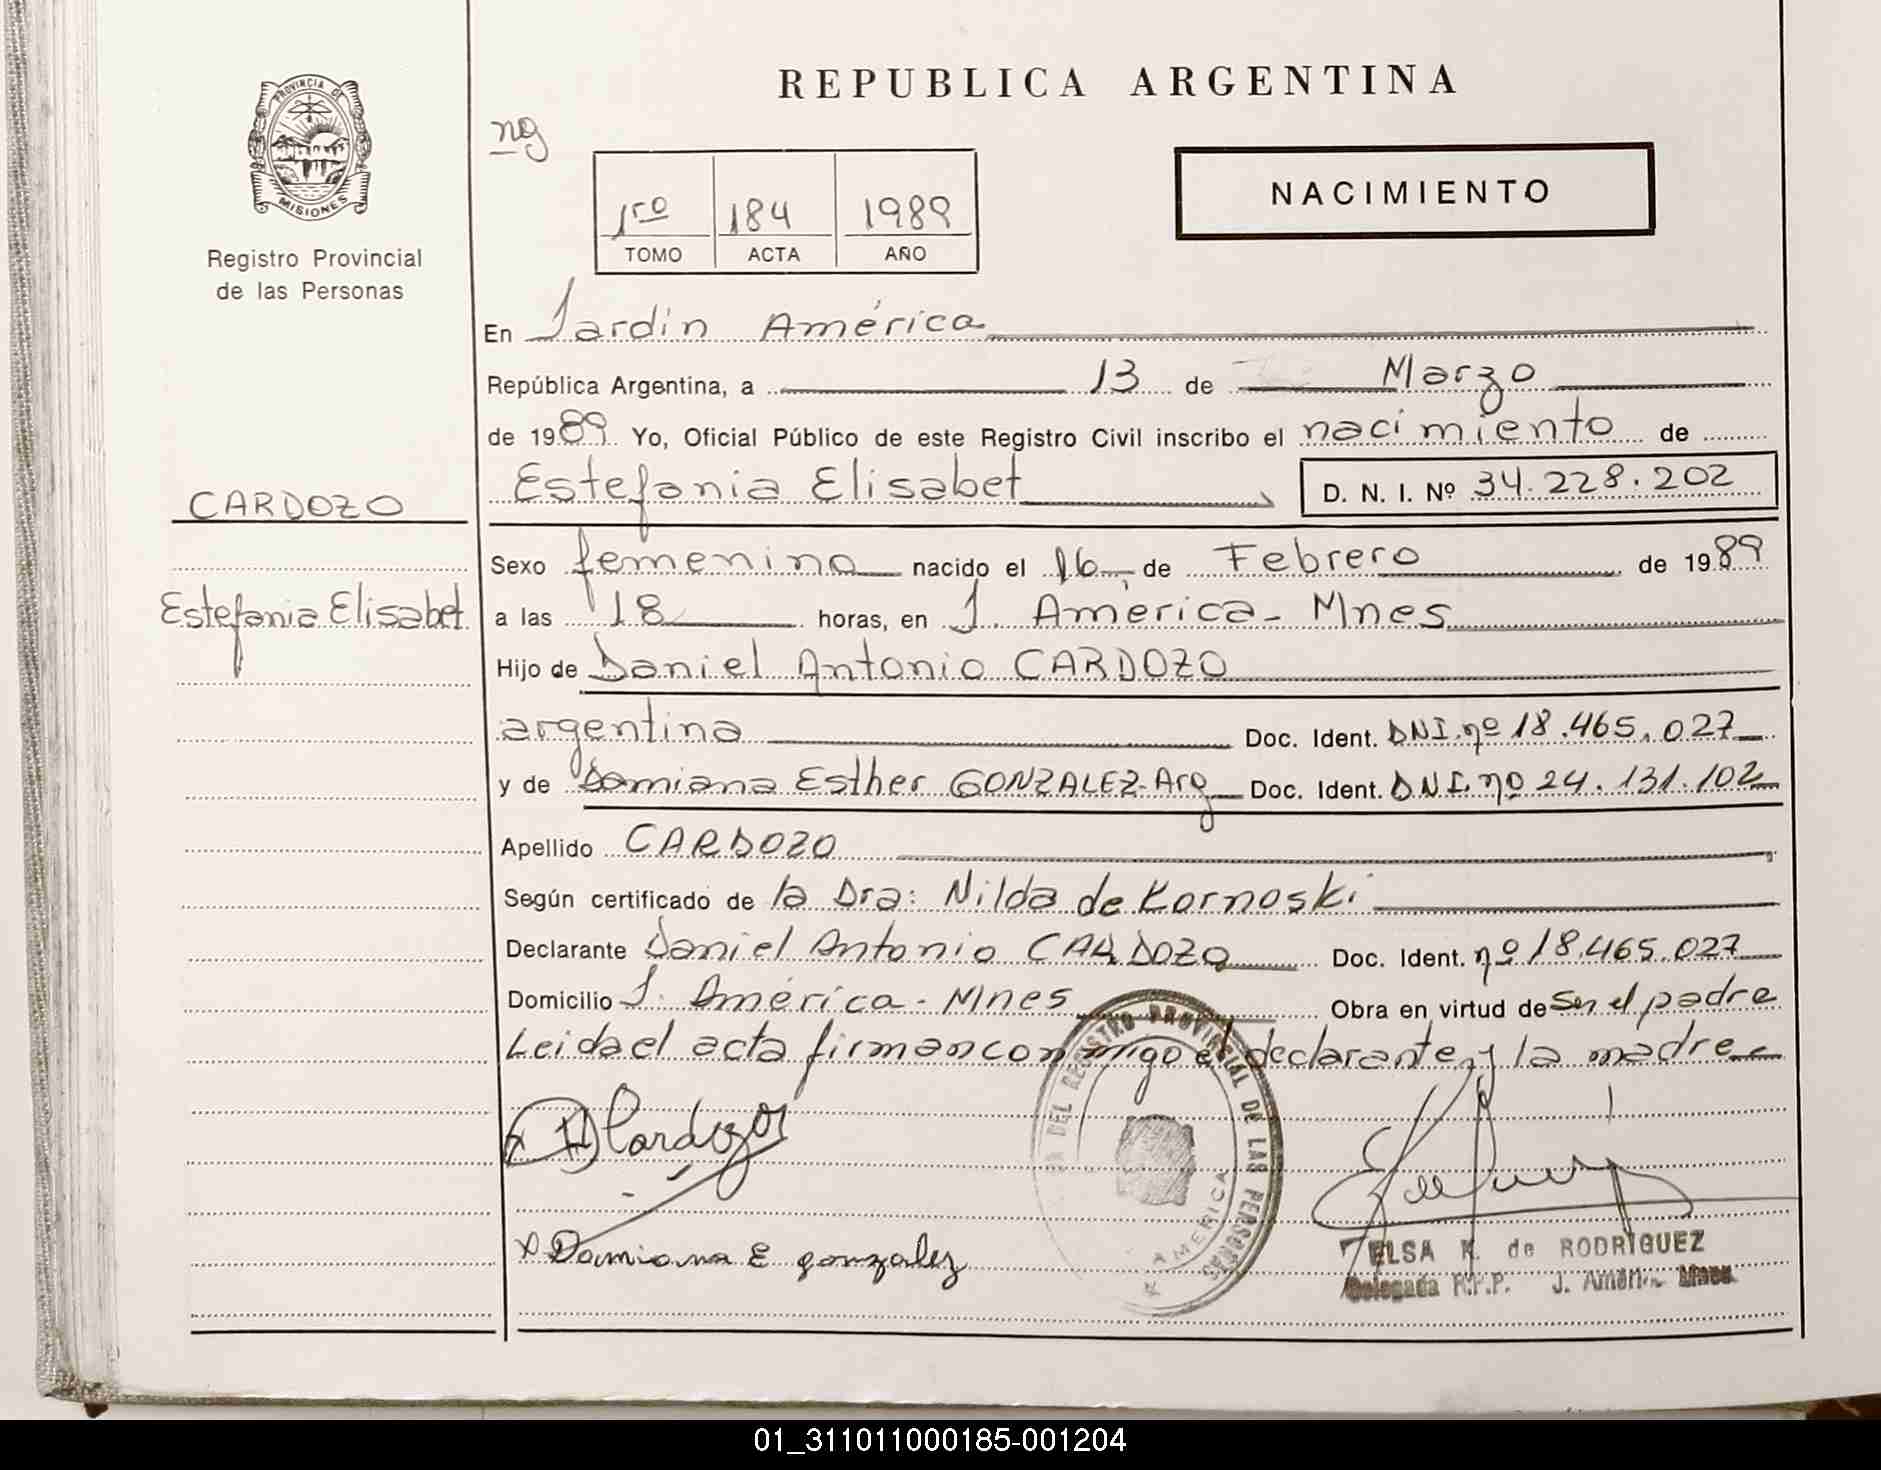 REPUBLICA ARGENTINA
PROVINCIA DE
MISIONES
Registro Provincial
de las Personas
ng
1ro 184 1989
TOMO ACTA AÑO
NACIMIENTO
En Jardín América
República Argentina, a 13 de Marzo
de 1989 Yo, Oficial Público de este Registro Civil inscribo el nacimiento de
CARDOZO
Estefania Elisabet D. N. I. Nº 34.228.202
Sexo femenino nacido el 16 de Febrero de 1989
Estefania Elisabet
a las 18 horas, en J. América - Mnes
Hijo de Daniel Antonio CARDOZO
argentina Doc. Ident. DNI.nº 18.465.027
y de Damiana Esther GONZALEZ-Arg Doc. Ident. DNI.nº 24.131.102
Apellido CARDOZO
Según certificado de la Dra: Nilda de Kornoski
Declarante Daniel Antonio CARDOZO Doc. Ident. nº 18.465.027
Domicilio J. América - Mnes Obra en virtud de Ser el padre
Leida el acta firman conmigo el declarante y la madre
DEL REGISTRO PROVINCIAL DE LAS PERSONAS
AMERICA
Cardozo
x Damiana E gonzalez
ELSA K. de RODRIGUEZ
Delegada R.P.P. J. América Mnes.
01_311011000185-001204